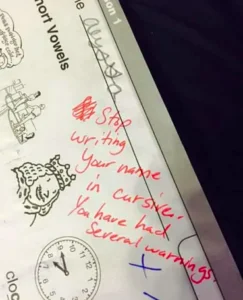 ion 1
me Alyssa
hort Vowels
Stop
writing
Your name
in cursive.
You have had
several warnings.
cloc